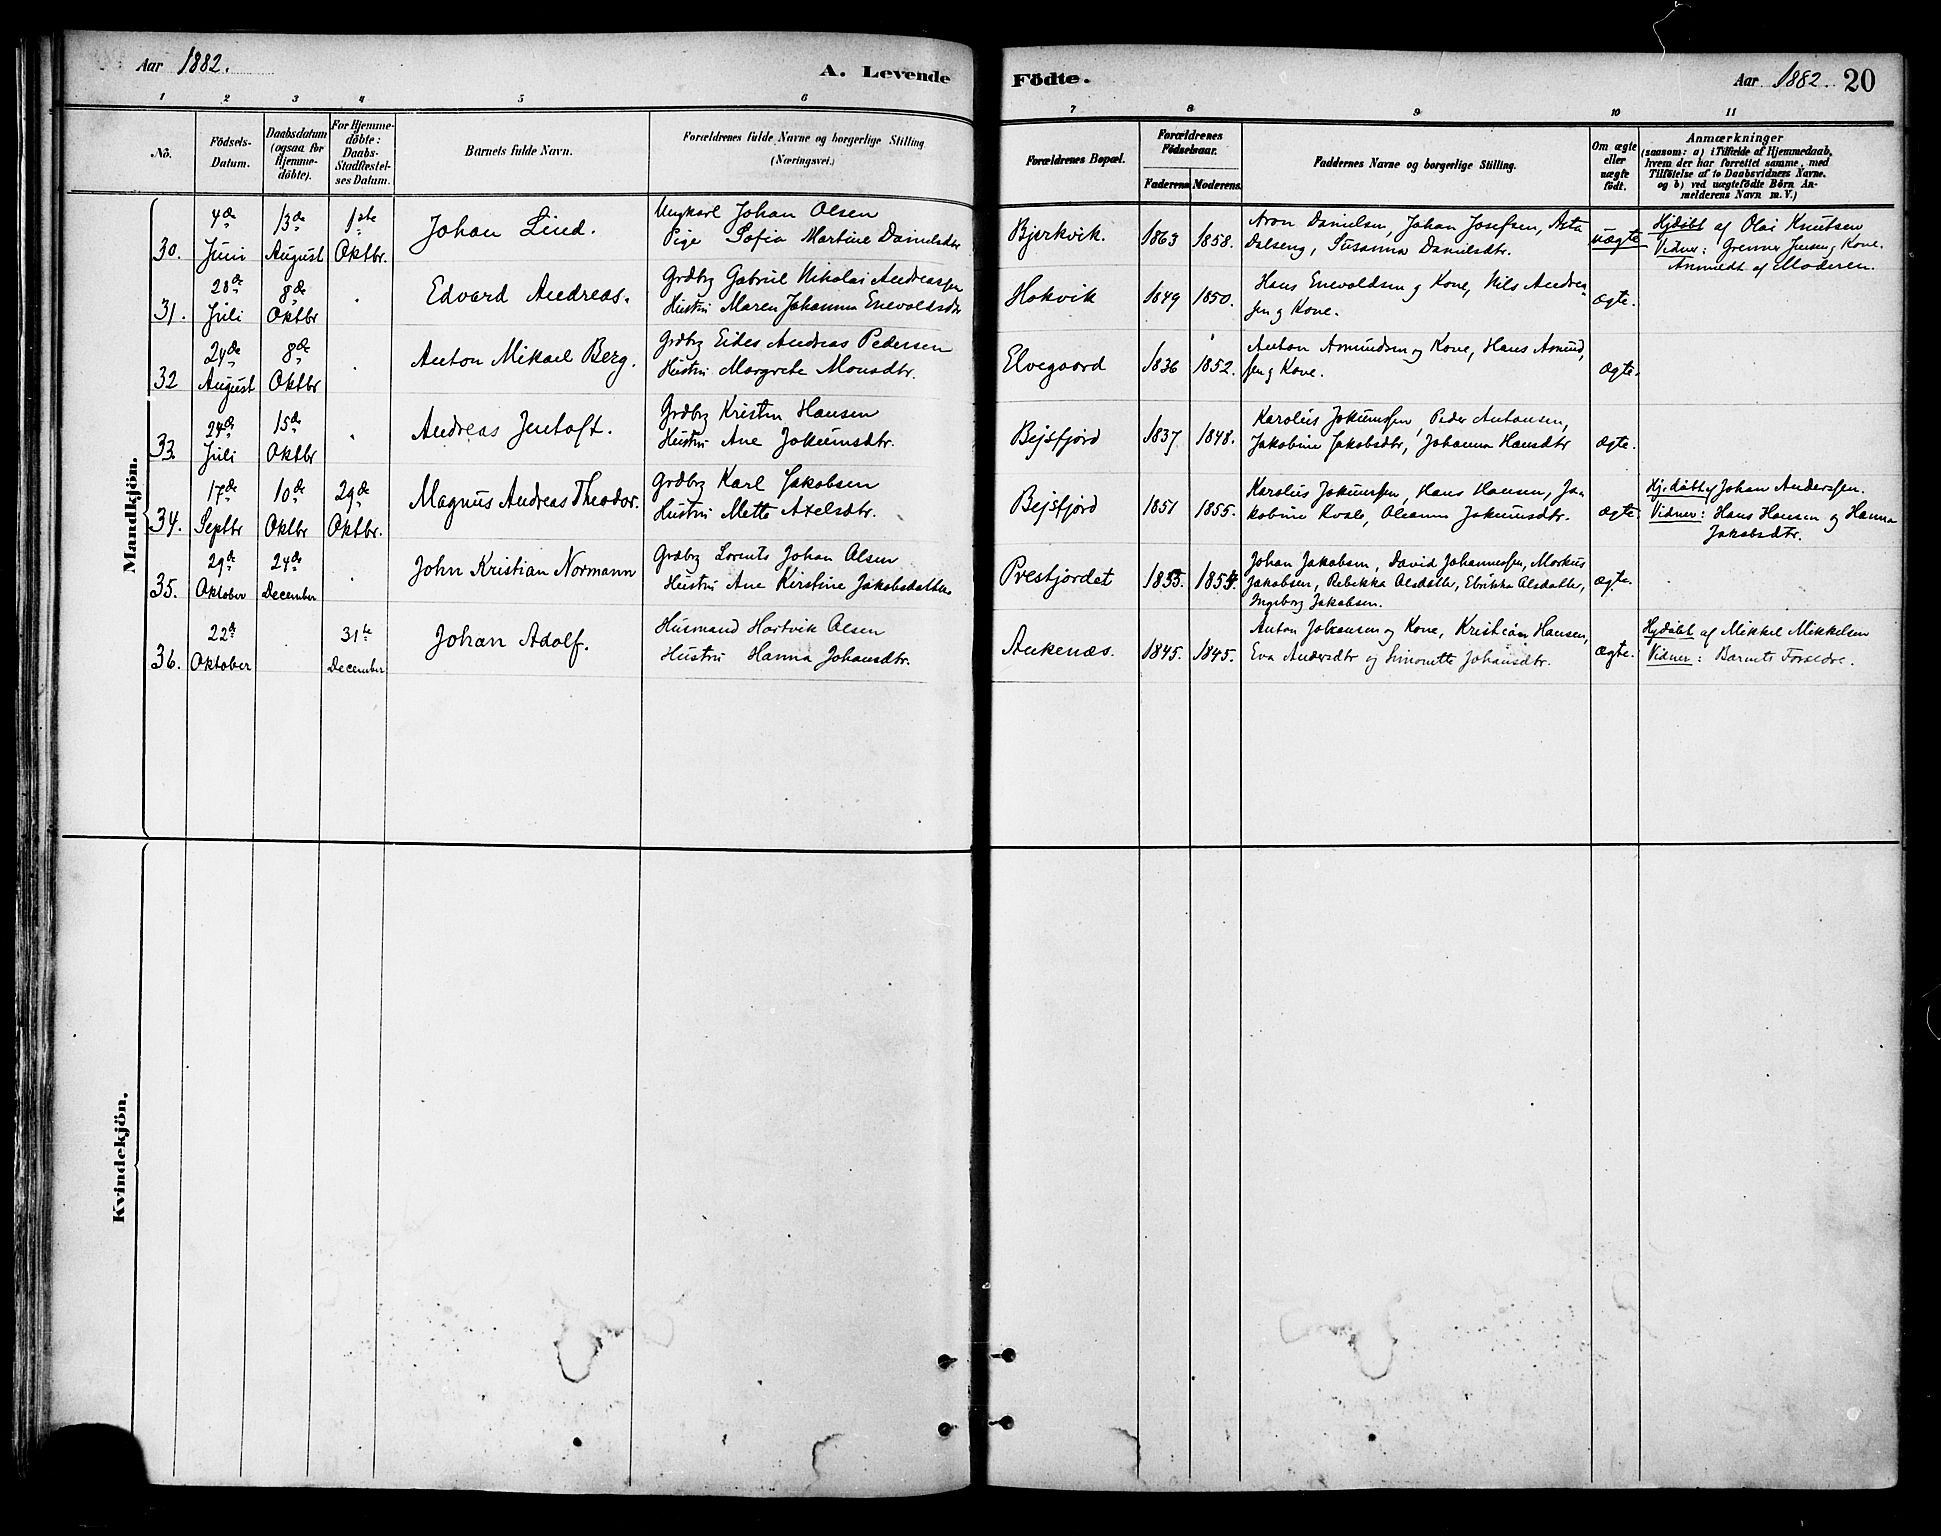 Aar 1882.
A. Levende Födte.
Aar 1882. 20
1 2 3 4 5 6 7 8 9 10 11
No.
Födsels-Datum.
Daabsdatum (ogsaa for Hjemme-döbte).
For Hjemme-döbte: Daabs-Stadfæstel-ses Datum.
Barnets fulde Navn.
Forældrenes fulde Navne og borgerlige Stilling
(Næringsvei.)
Forældrenes Bopæl.
Forældrenes Födselsaar.
Faderens Moderens.
Faddernes Navne og borgerlige Stilling.
Om ægte eller uægte födt.
Anmærkninger
(saasom: a) i Tilfælde af Hjemmedaab,
hvem der har forrettet samme, med
Tilföielse af to Daabsvidners Navne.
og b) ved uægtefödte Börn An-
melderens Navn m. V.)
Mandkjön.
30. 4de Juni 13de August 1ste Oktbr. Johan Lind.
Ungkarl Johan Olsen
Pige Sofia Martine Danielsdtr
Bjerkvik. 1863 1858.
Aron Danielsen, Johan Josefsen, Asta
Dalseng, Susanna Danielsdtr.
uægte
Hjdöbt af Olai Knutsen
Vidner: Grenner Jensen g Kone.
Anmeldt af Moderen.
31. 28de Juli 8de Oktbr " Edvard Andreas.
Grdbr Gabriel Nikolai Andreassen
Hustru Maren Johanna Enevoldsdtr
Hokvik 1849 1850.
Hans Enevoldsen g Kone, Nils Andrea-
sen g Kone.
ægte.
32 24de August 8de Oktbr " Anton Mikael Berg.
Grdbr Eides Andreas Pedersen
Hustru Margrete Monsdtr.
Elvegaard 1836 1852.
Anton Asmundsen og Kone, Hans Asmund,
sen g Kone.
ægte.
33. 24de Juli 15de Oktbr " Andreas Jentoft.
Grdbr Kristen Hansen
Hustru Ane Jokumsdtr.
Bejsfjord 1837 1848.
Karolius Jokumsen, Peder Antonsen,
Jakobine Jakobsdtr, Johanna Hansdtr
ægte.
34. 17de Septbr 10de Oktbr 29de Oktbr. Magnus Andreas Theodor.
Grdbr Karl Jakobsen
Hustru Mette Axelsdtr.
Bejsfjord 1851 1855.
Karolius Jokumsen, Hans Hansen, Ja-
kobine Kvale, Oleanna Jokumsdtr.
ægte
Hj.döbt g Johan Anderssen.
Vidner: Hans Hansen og Hanna
Jakobsdtr.
35. 29de Oktober 24de December " John Kristian Normann
Grdbr Lorents Johan Olsen
Hustru Ane Kirstine Jakobsdatter
Prestjordet 1853. 1854.
Johan Jakobsen, David Johannessen, Morkus
Jakobsen, Rebekka Olsdatter, Elrikka Olsdatter,
Ingeborg Jakobsen.
ægte.
36. 22de Oktober 31te December Johan Adolf.
Husmand Hartvik Olsen
Hustru Hanna Johansdtr.
Ankenæs. 1845. 1845.
Anton Johansen og Kone, Kristian Hansen,
Eva Andersdtr og Simonette Johansdtr.
ægte.
Hjdöbt af Mikkel Mikkelsen
Vidner: Barnets Forældre.
Kvindekjön.